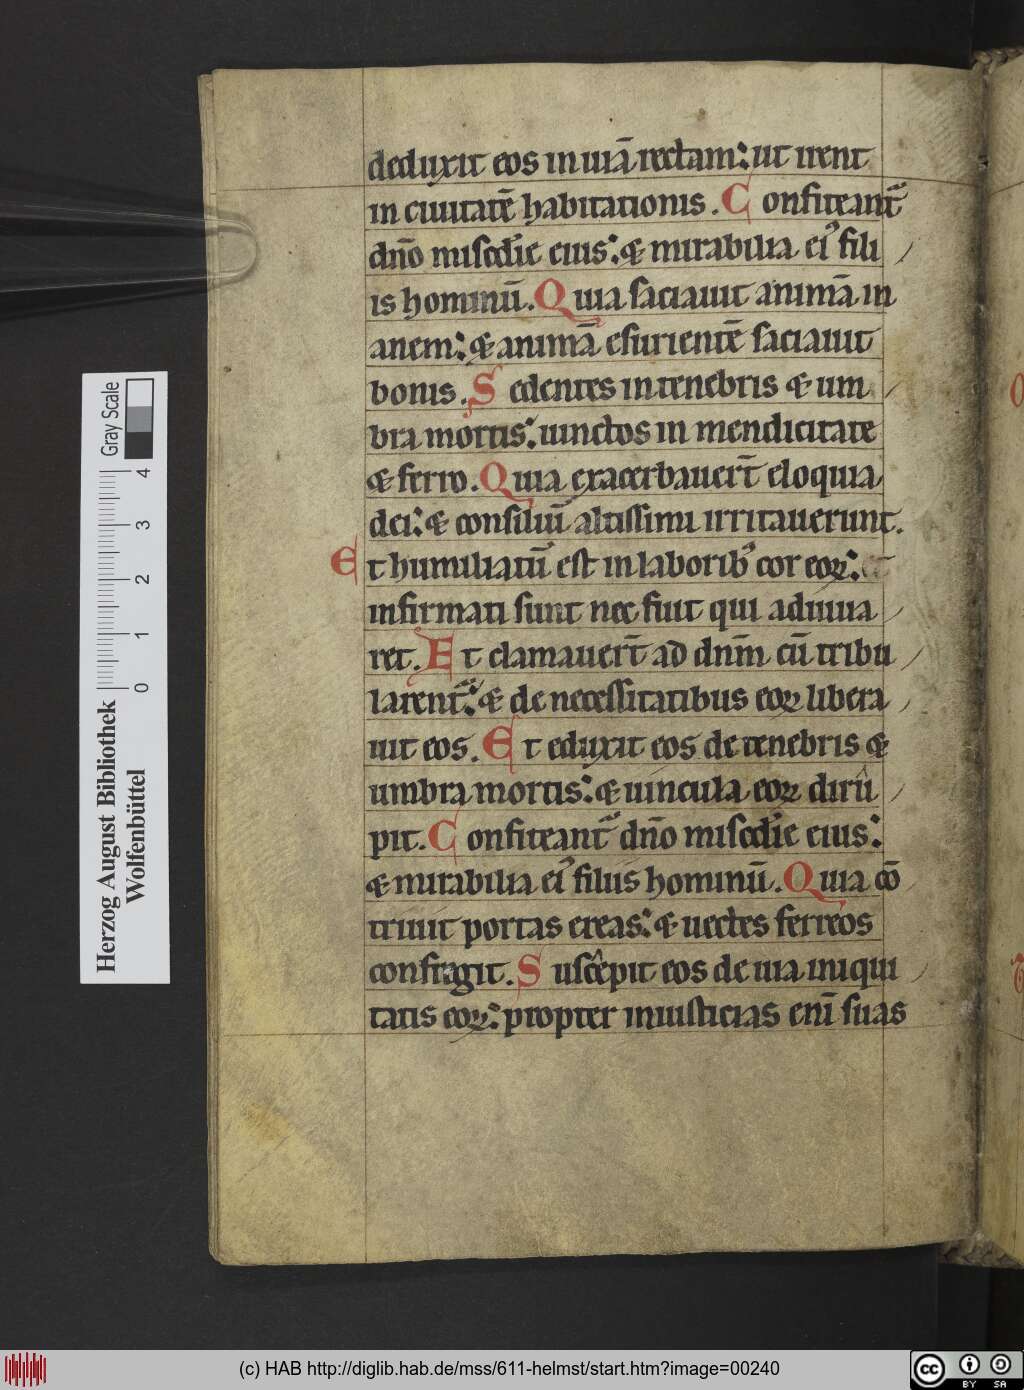 deduxit eos in uiā rectam: ut irent
in ciuitatē habitationis. Confiteant᷑
dn̄o miscd̓ie eius: & mirabilia ei᷒ fili
is hominū. Quia saciauit animā in
anem: & animā esurientē saciauit
bonis. Sedentes in tenebris & um
bra mortis: uinctos in mendicitate
& ferro. Quia exacerbauer̄t eloquia
dei: & consiliū altissimi irritauerunt.
Et humiliatū est in laborib᷒ cor eoꝝ:
infirmati sunt nec fuit qui adiuua
ret. Et clamauer̄t ad dn̄m cū tribu
larent᷑: & de necessitatibus eoꝝ libera
uit eos. Et eduxit eos de tenebris &
umbra mortis: & uincula eoꝝ dirū
pit. Confiteant᷑ dn̄o miscd̓ie eius:
& mirabilia ei᷒ filiis hominū. Quia cō
triuit portas ereas: & uectes ferreos
confragit. Suscepit eos de uia iniqui
tatis eoꝝ: propter iniusticias eni̅ suas
Herzog August Bibliothek
Wolfenbüttel
0 1 2 3 4
Gray Scale
(c) HAB http://diglib.hab.de/mss/611-helmst/start.htm?image=00240
cc BY SA